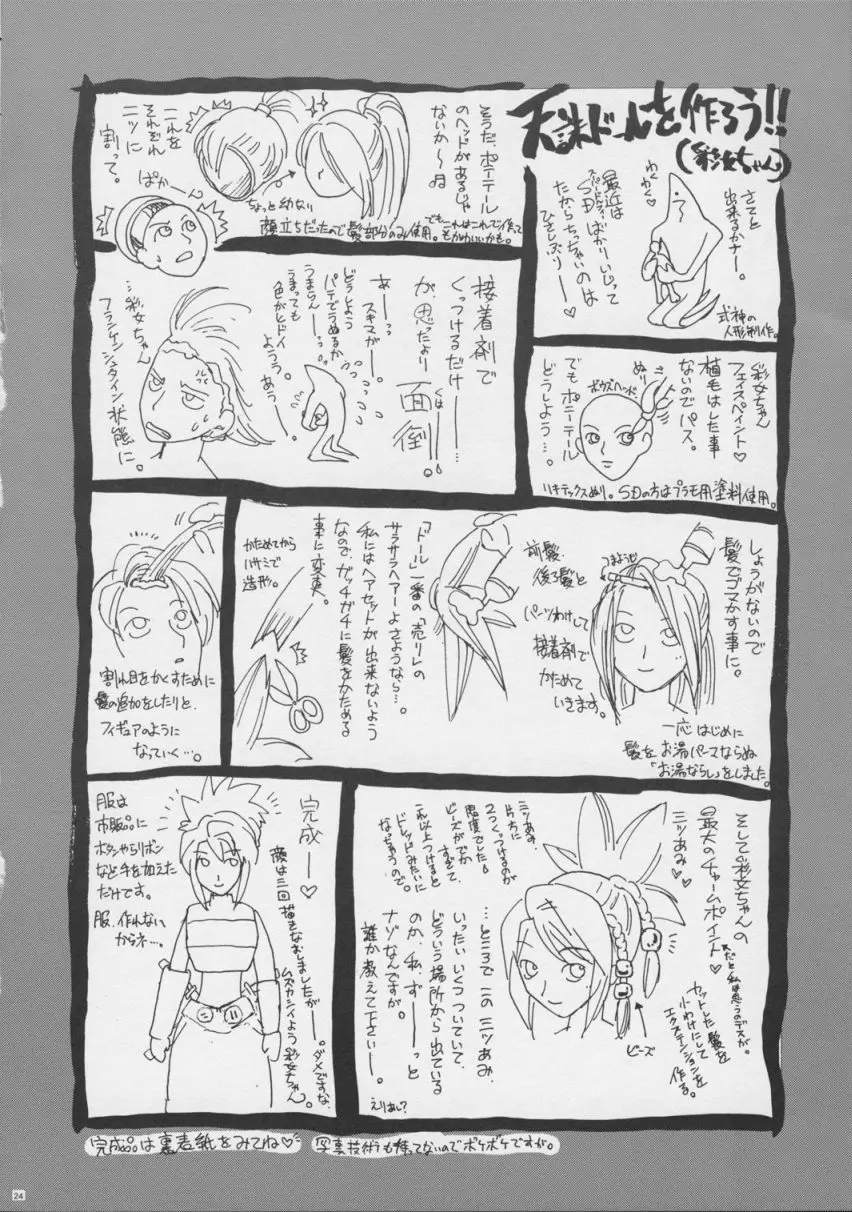 天誅ドールを作ろう!!
(彩女ちゃん)
さてと
出来るかナー。
わくわく♡
最近は
スーパードルフィー
SDばかりいじって
たからちっちゃいのは
ひさしぶりー♡
式神の
人形制作。
彩女ちゃん
フェイスペイント♡
植毛はした事
ないのでパス。
でもポニーテール
どうしよう…。
ぬりぬり
ボウズヘッド
リキテックスぬり。SDの方はプラモ用塗料使用。
そうだ、ポニーテール
のヘッドがあるじゃ
ないか〜
ちょっと幼ない
顔立ちだったので髪部分のみ使用。
でもこれはこれで作って
もかわいいかも。
これを
それぞれ
二ッに
割って。
ぱかーん
接着剤で
くっつけるだけ———
が、思ったより
面倒。
あーっっ
スキマがー。
どうしよう
パテでうめるか
うまらんーっ。
うまっても
色がヒドイ
ようう。
あうー。
…彩女ちゃん
フランケンシュタイン状態に。
しょうがないので
髪でゴマかす事に。
つまようじ
一応はじめに
髪をお湯パーマならぬ
「お湯ならし」をしました。
前髪、
後ろ髪と
パーツわけして
接着剤で
かためて
いきます。
「ドール」一番の「売り」の
サラサラヘアーよさようなら…。
私にはヘアセットが出来ないよう
なので、ガッチガチに髪をかためる
事に変更。
かためてから
ハサミで
造形。
割れ目をかくすために
髪の追加をしたりと、
フィギュアのように
なっていく…。
そして彩女ちゃんの
最大のチャームポイント♡
三ツあみ
だと私は思うのデスが。
カットした髪を
小わけにして
エクステンションを
作る。
ビーズ
三ツあみ、
片方に
2つくっつけるのが
限度でした
ビーズがでか
すぎて、
これ以上つけると
ドレッドみたいに
なっちゃうので。
…ところでこの三ツあみ、
いったいいくつついていて、
どういう場所から出ている
のか、私、ずーーっと
ナゾなんですが。
誰か教えて下さいー。
えりあし?
完成ー♡
顔は三回描きなおしましたがー。ダメですな。
ムズカシイよう彩女ちゃん。
服は
市販品に
ボタンやらリボン
など手を加えた
だけです。
服、作れない
からネ…。
完成品は裏表紙をみてね♡
写真技術も持ってないのでボケボケですが。
24